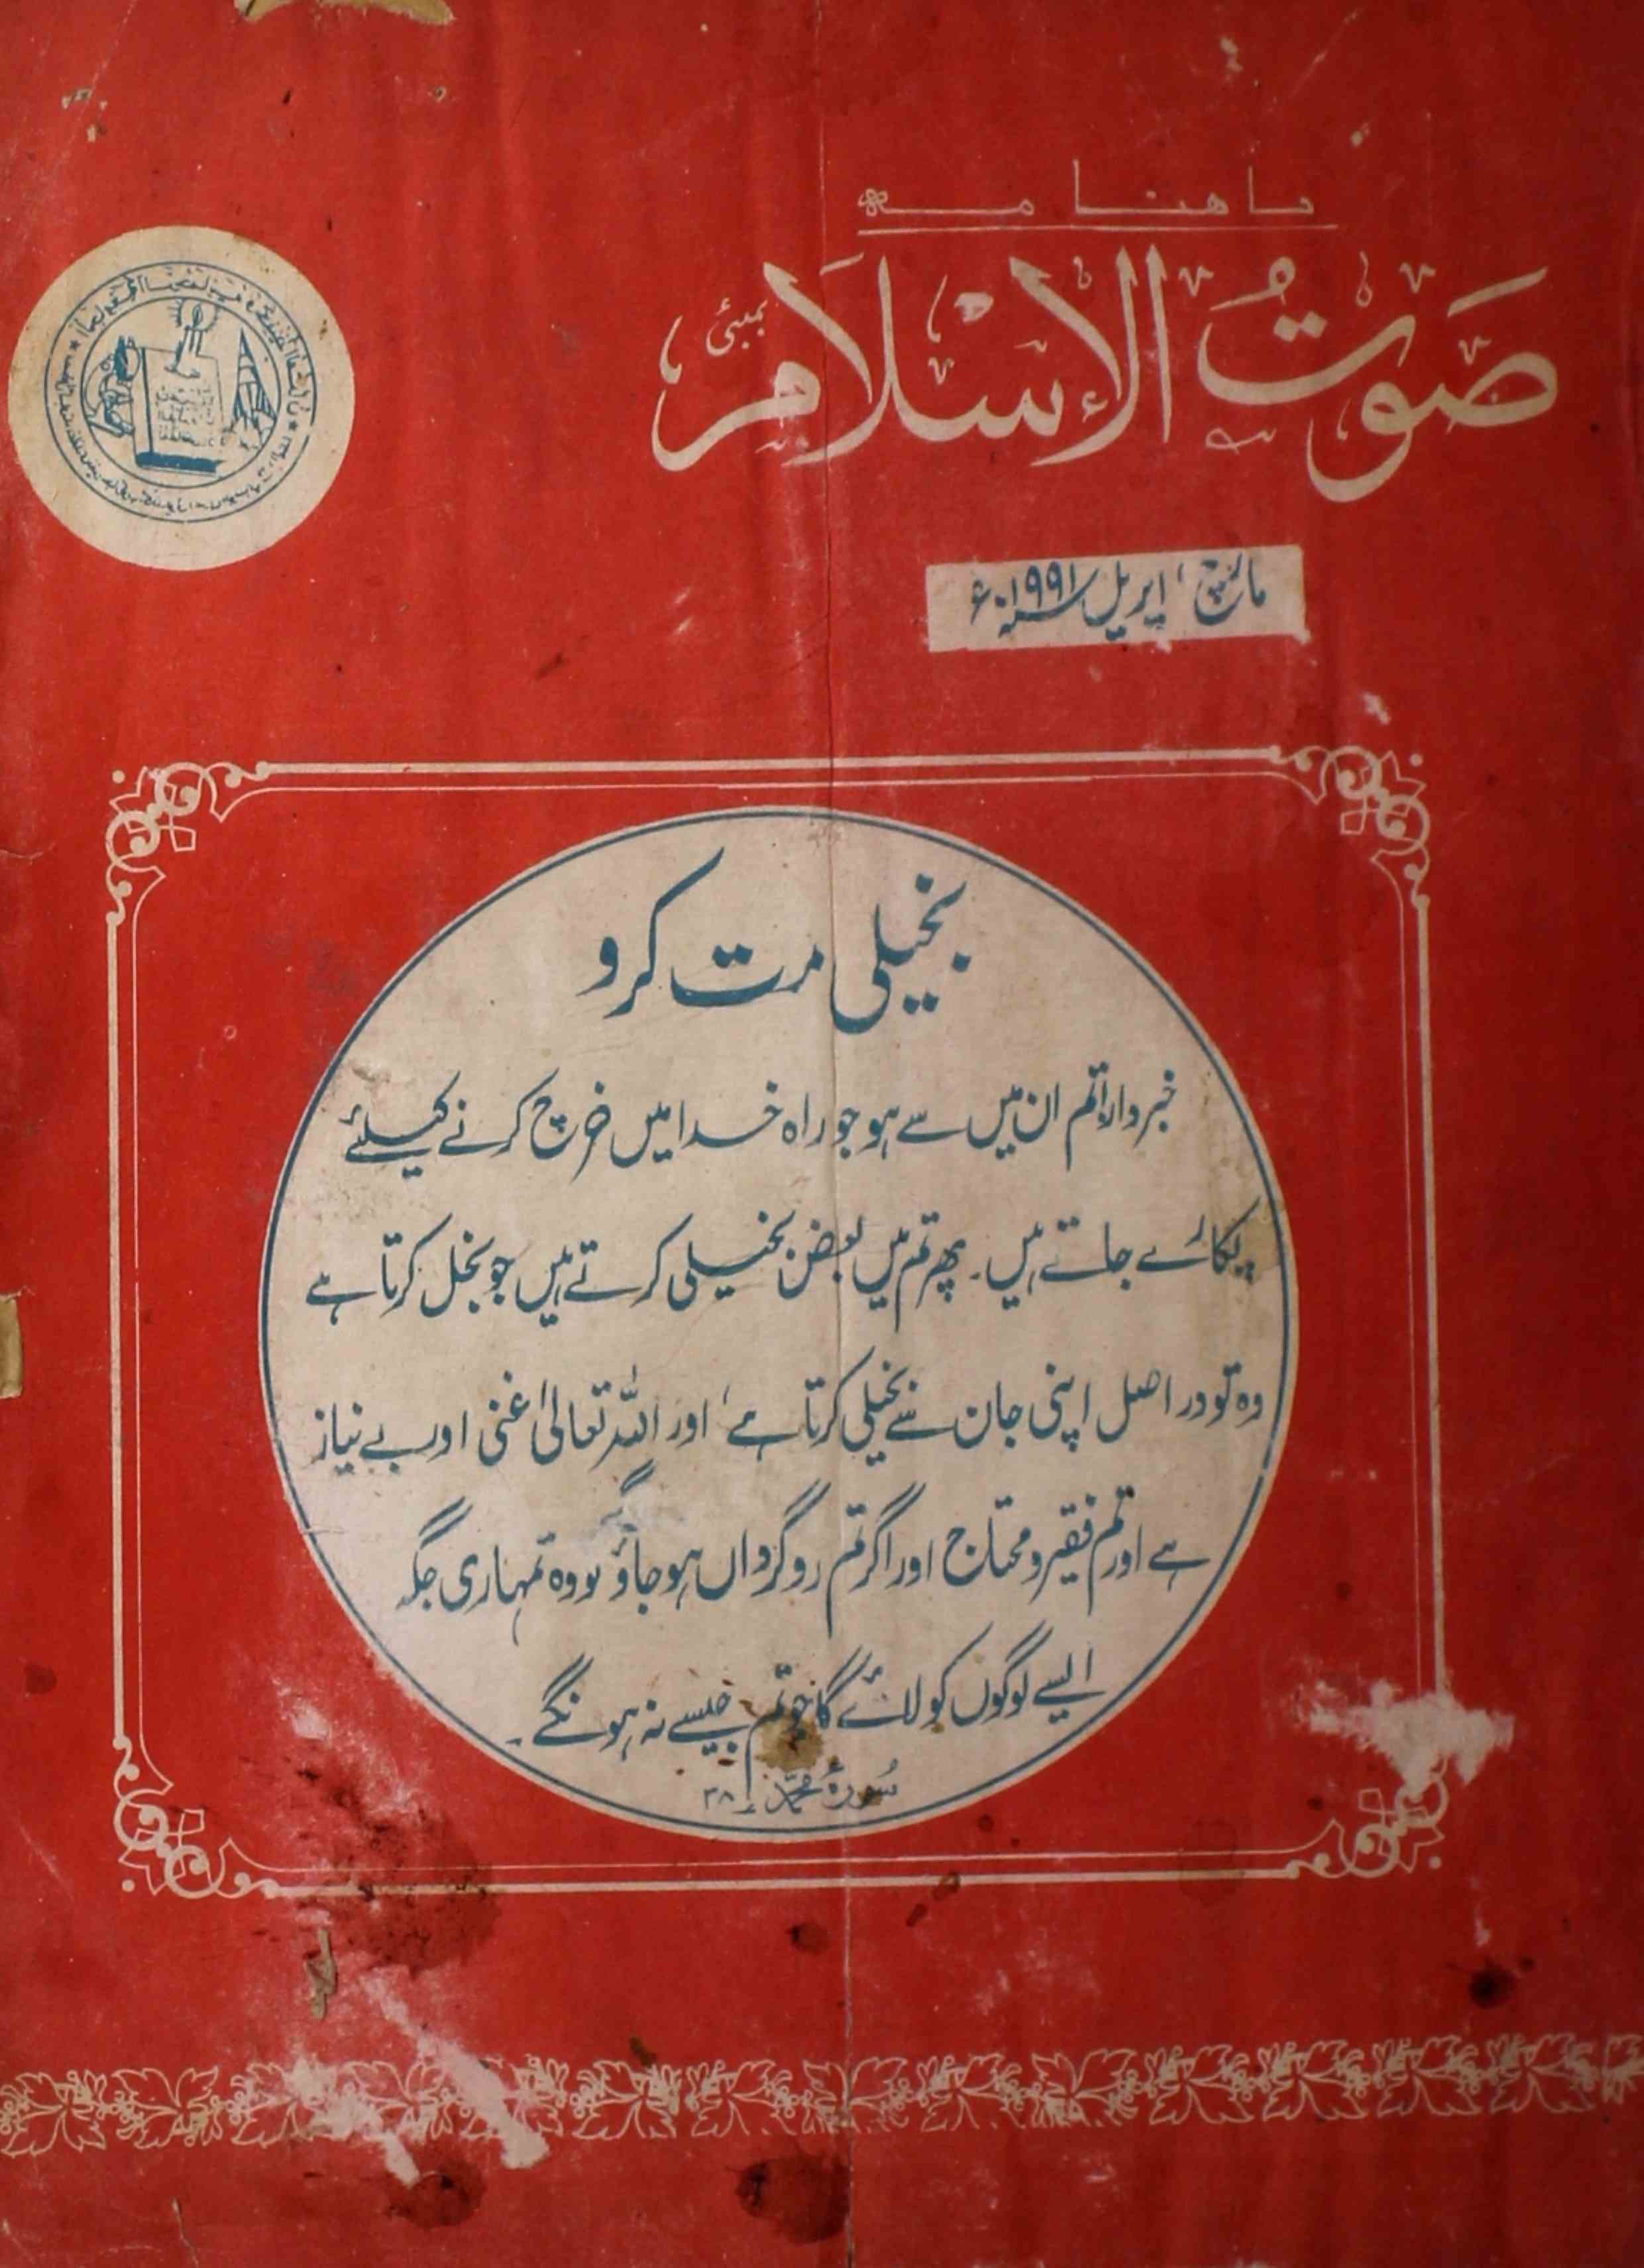 ماہنامہ
صَوتُ الإسْلَام
بمبئی
مارچ، اپریل سنہ ۱۹۹۱ء
بخیلی مت کرو
خبردار! تم ان میں سے ہو جو راہ خدا میں خرچ کرنے کیلئے
پکارے جاتے ہیں۔ پھر تم میں بعض بخیلی کرتے ہیں جو بخل کرتا ہے
وہ تو در اصل اپنی جان سے بخیلی کرتا ہے، اور اللہ تعالیٰ غنی اور بے نیاز
ہے اور تم فقیر و محتاج اور اگر تم روگرداں ہو جاؤ گے تو وہ تمہاری جگہ
ایسے لوگوں کو لائے گا جو تم جیسے نہ ہونگے۔
سُورۂ محمدؐ ۳۸